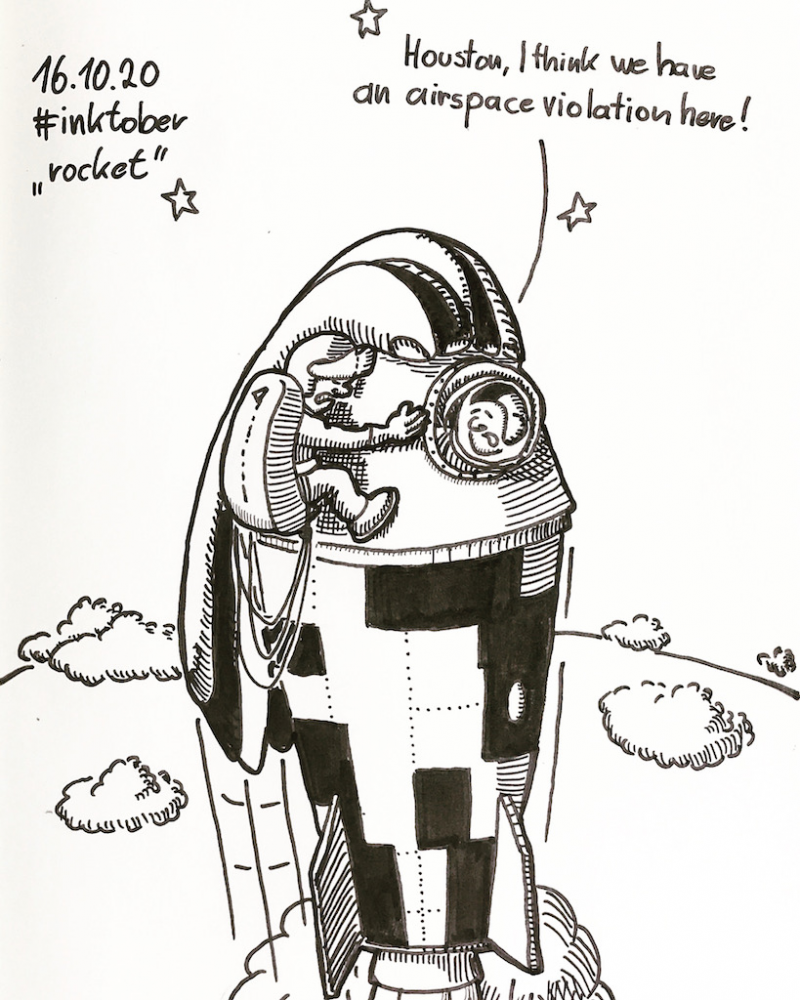 16.10.20
#inktober
„rocket”
Houston, I think we have
an airspace violation here!